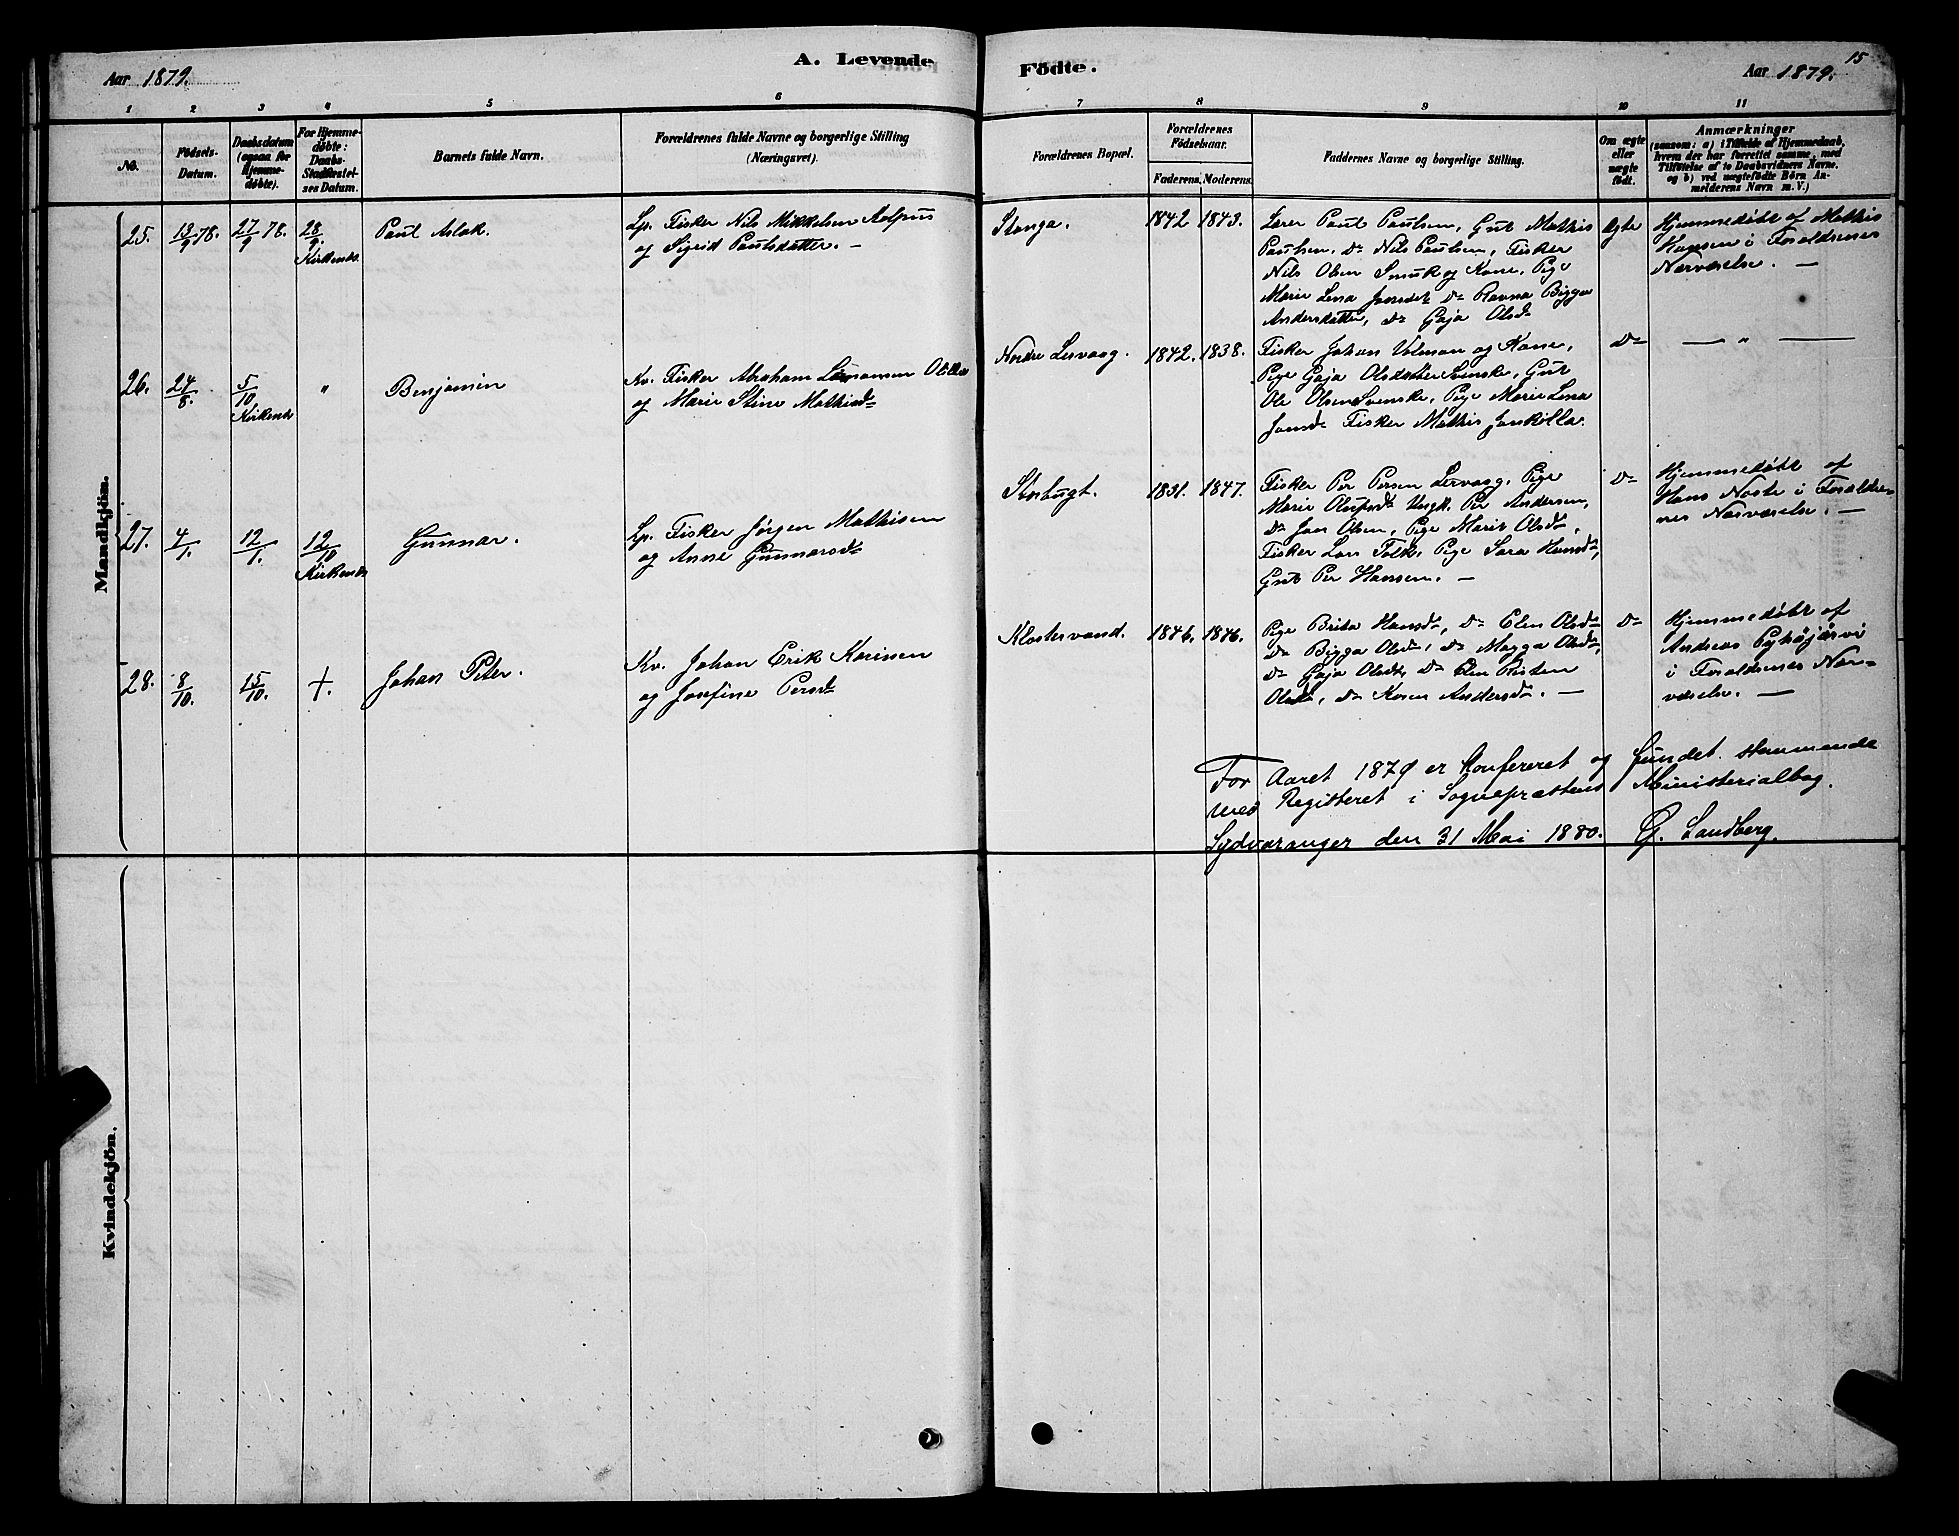 Aar 1879.
A. Levende
Födte.
15
Aar 1879.
1 2 3 4 5 6 7 8 9 10 11
No.
Födsels-
Datum.
Daabsdatum
(ogsaa for
Hjemme-
döbte).
For Hjemme-
döbte:
Daabs-
Stadfæstel-
ses Datum.
Barnets fulde Navn.
Forældrenes fulde Navne og borgerlige Stilling
(Næringsvei).
Forældrenes Bopæl.
Forældrenes
Födselsaar.
Faderens. Moderens.
Faddernes Navne og borgerlige Stilling.
Om ægte
eller
uægte
födt.
Anmærkninger
(saasom: a) i Tilfælde af Hjemmedaab,
hvem der har forrettet samme, med
Tilföielse af to Daabsvidners Navne,
og b) ved uægtefödte Börn An-
melderens Navn m. V.)
Mandkjön.
25. 13/9 78. 27/9 78. 28/9. Kirkenes.
Paul Aslak.
Lp. Fisker Nils Mikkelsen
og Sigrid Paulsdatter. —
Stanga.
1842 1843.
Lærer Paul Paulsen, Gut Mathis
Paulsen, Do Nils Paulsen, Fisker
Nils Olsen Smuk og Kone, Pige
Marie Lena Jonsdt Do Ravna Bigga
Andersdatter, Do Gaja Olsdr
Ægte
Hjemmedöbt af Mathis
Hansen i Forældrenes
Nærværelse. —
26. 24/8. 5/10 Kirkenes "
Benjamin
Kv. Fisker Abraham
og Marie Stine Mathisdr
Nordre Leirvaag.
1842. 1838.
Fisker Johan Volman og Kone,
Pige Gaja Olsdatter Svenske, Gut
Ole Olsen Svenske, Pige Marie Lena
Jonsdr Fisker Mathis Jankilla.
Do
— " —
27. 4/1. 12/1. 12/10 Kirkenes
Gunnar.
Lp. Fisker Jørgen Mathisen
og Anne Gunnarsdr
Storbugt.
1831. 1847.
Fisker Per Persen Lervaag, Pige
Marie Olufsdr Ungk. Per Andersen,
Do Jon Olsen, Pige Marit Olsdr,
Fisker Lars Falk, Pige Sara Hansdr,
Gut Per Hansen. —
Do
Hjemmedöbt af
Hans Noste i Forældre-
nes Nærværelse. —
28. 8/10. 15/10. +.
Johan Peter.
Kv. Johan Erik Karissen
og Josefine Persdr
Klostervand.
1846. 1846.
Pige Brita Hansdr, Do Elen Olsdr
Do Bigga Olsdr, Do Magga Olsdr,
Do Gaja Olsdr, Do Elen Kristen
Olsdr, Do Karen Andersdr. —
Do
Hjemmedöbt af
Andreas Pyhäjärvi
i Forældrenes Nær-
værelse. —
For Aaret 1879 er Konfereret og fundet stemmende
med Registeret i Sognepræstens Ministerialbog.
Sydvaranger den 31 Mai 1880. G. Sandberg.
Kvindekjön.